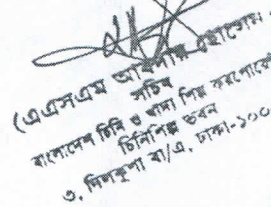 (এএসএম
সচিব
বাংলাদেশ চিনি ও খাদ্য শিল্প
চিনিশিল্প ভবন
৩, দিলকুশা বা/এ, ঢাকা-১০০